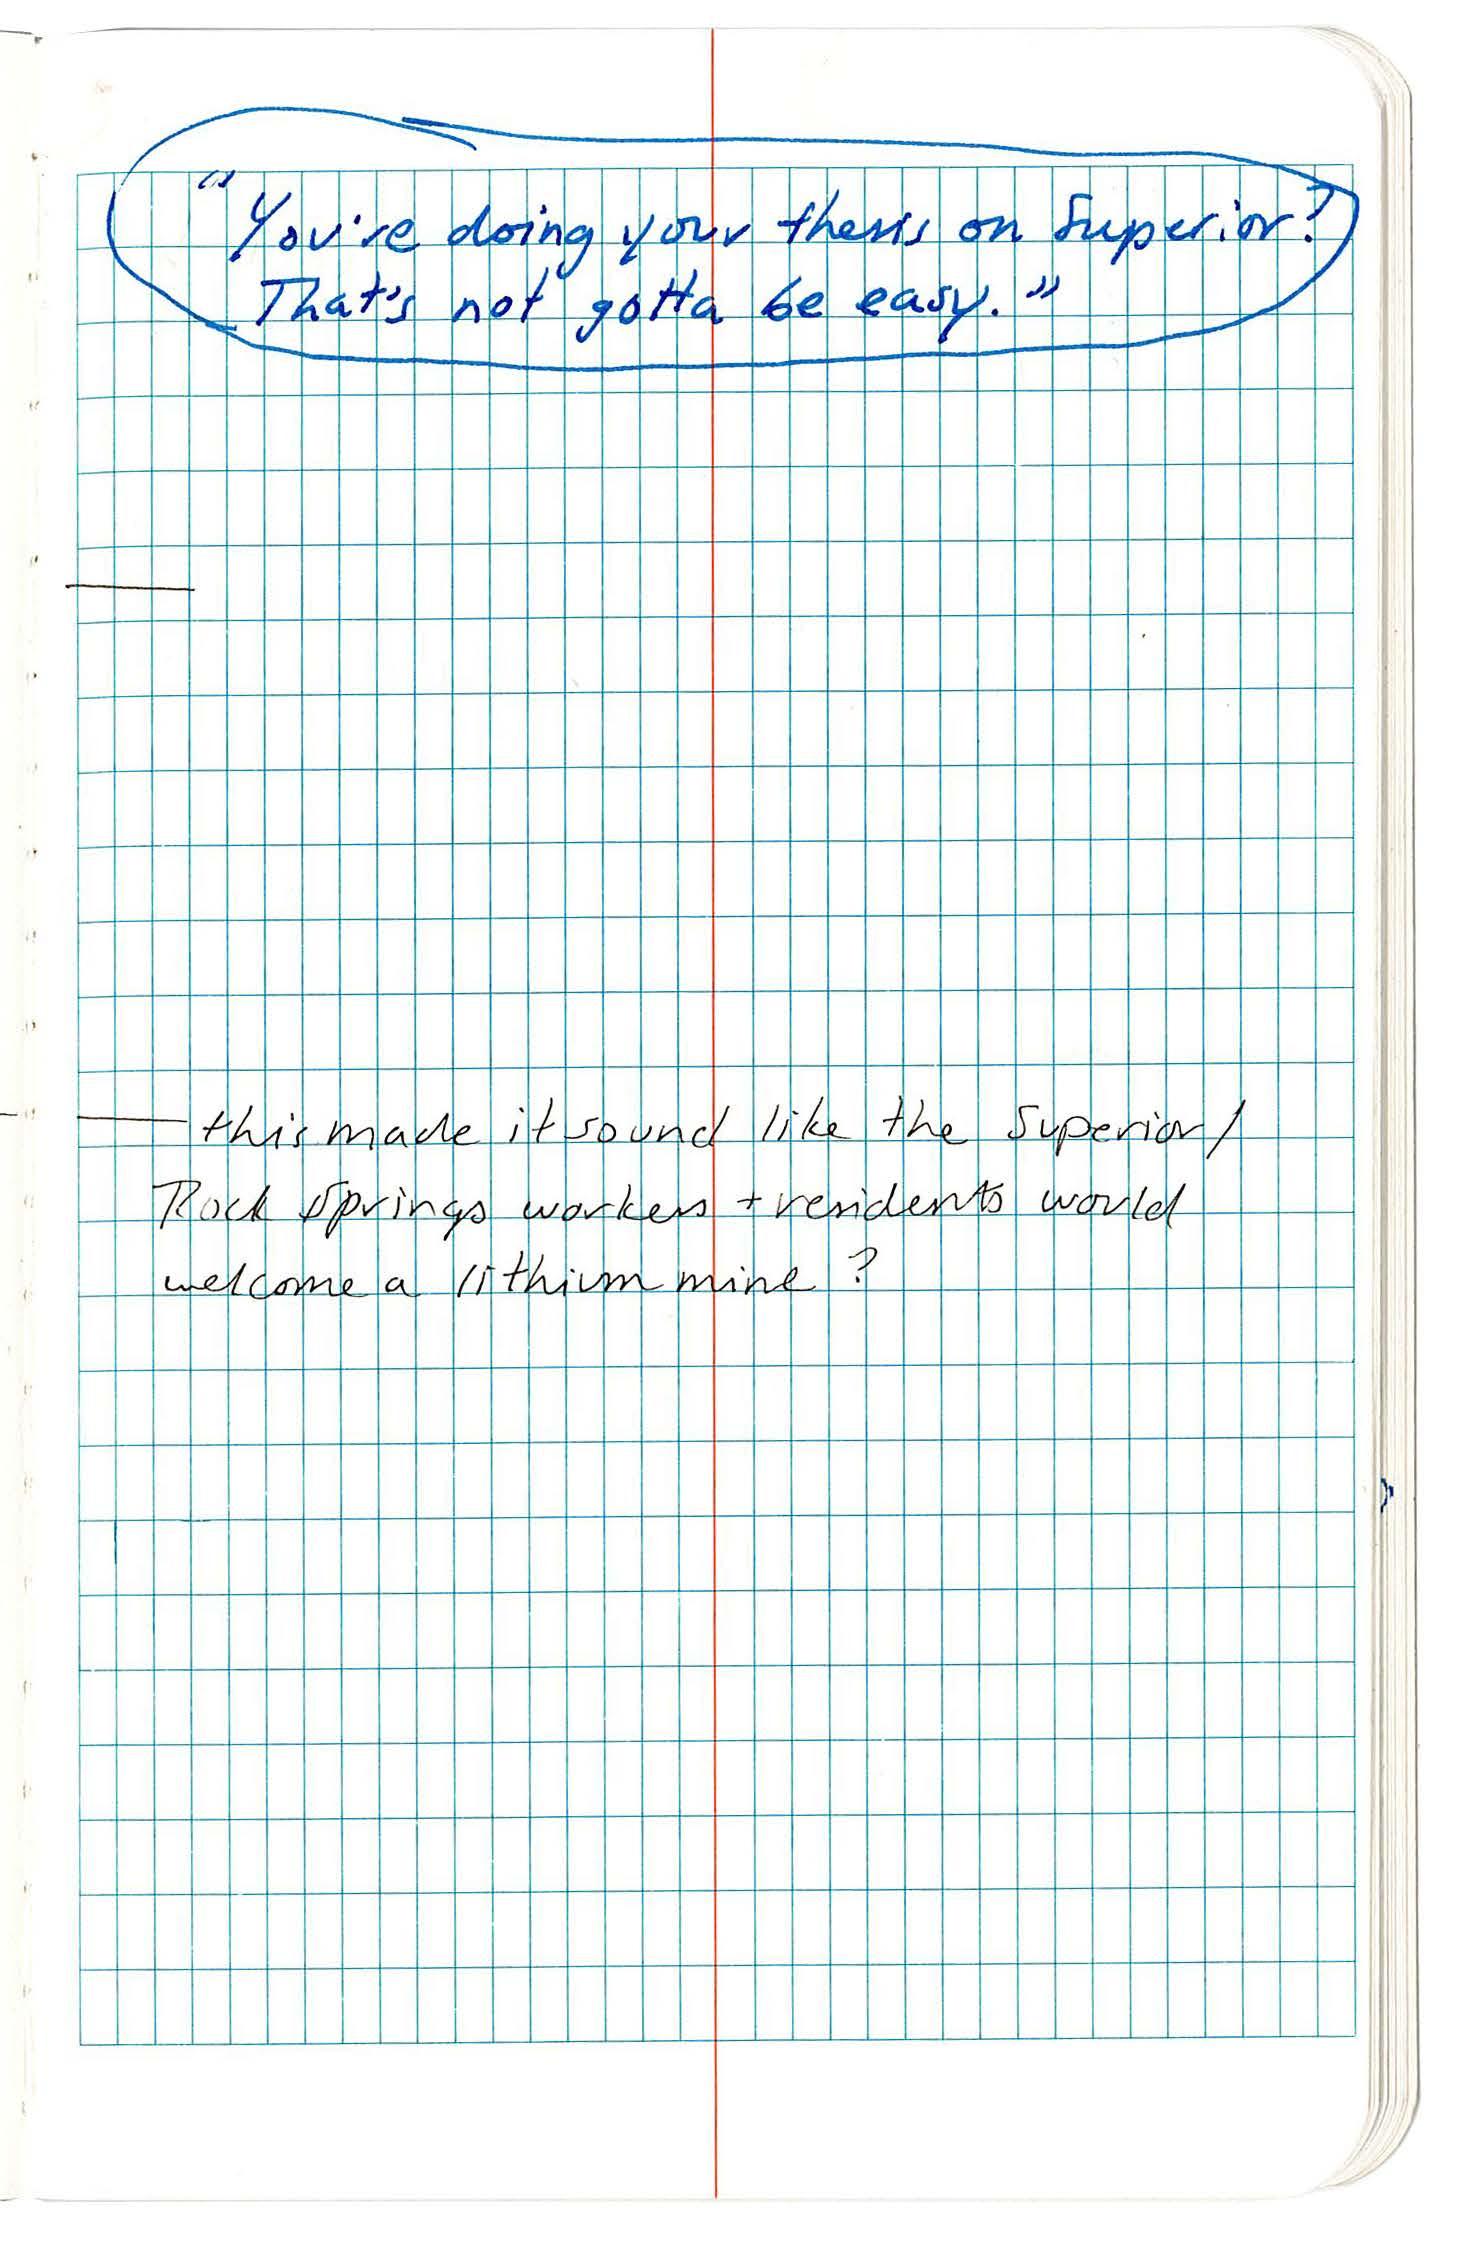 "You're doing your thesis on Superior?
That's not gotta be easy."
this made it sound like the Superior/
Rock Springs workers + residents would
welcome a lithium mine?